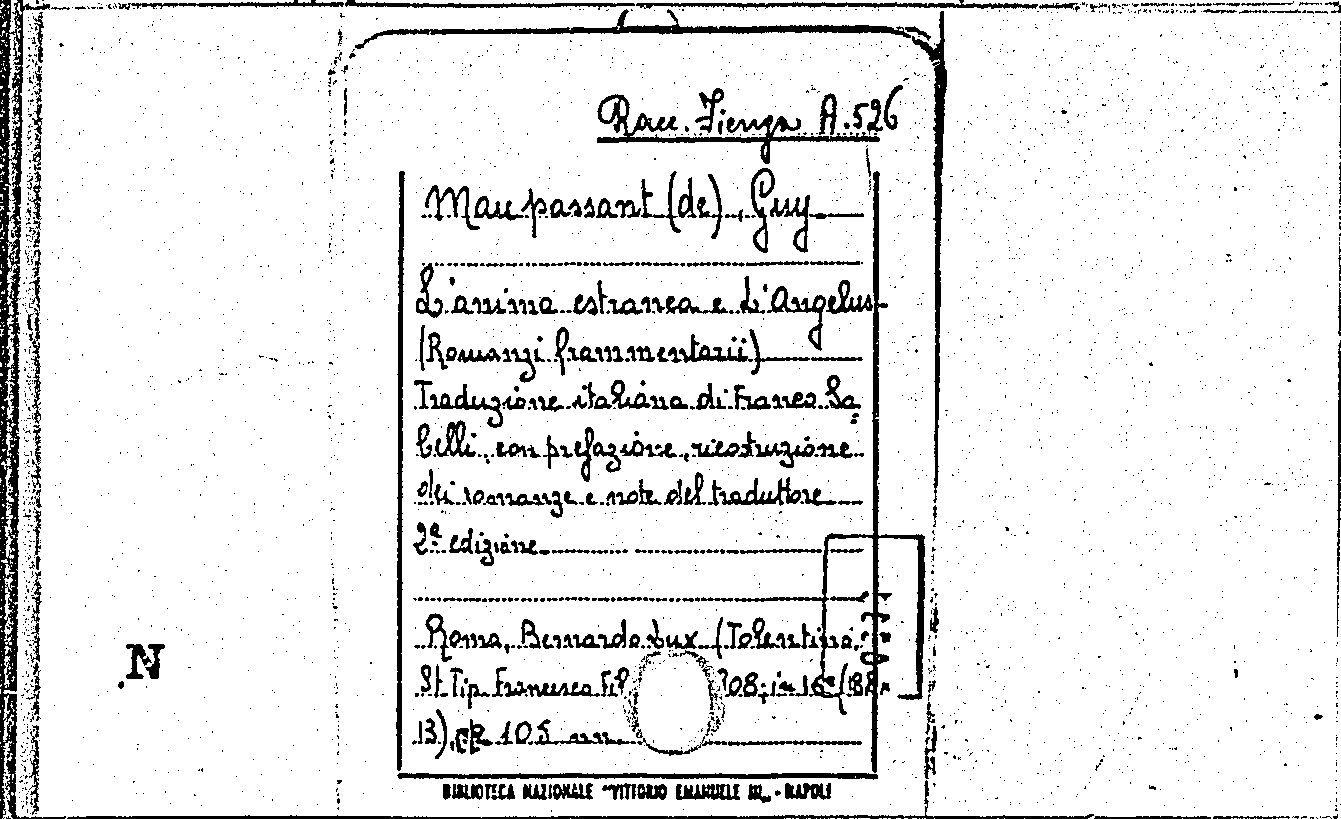 Racc. Fienga A.526
Maupassant (de), Guy
L'anima estranea e L'Angelus
(Romanzi frammentarii)
Traduzione italiana di Franco Sa
belli, con prefazione, ricostruzione
dei romanze e note del traduttore
2ª edizione
Roma, Bernardo Lux (Tolentino.
St. Tip. Francesco Fil 908; in 16° (18x
13), pp 105
N
BIBLIOTECA NAZIONALE "VITTORIO EMANUELE III" - NAPOLI